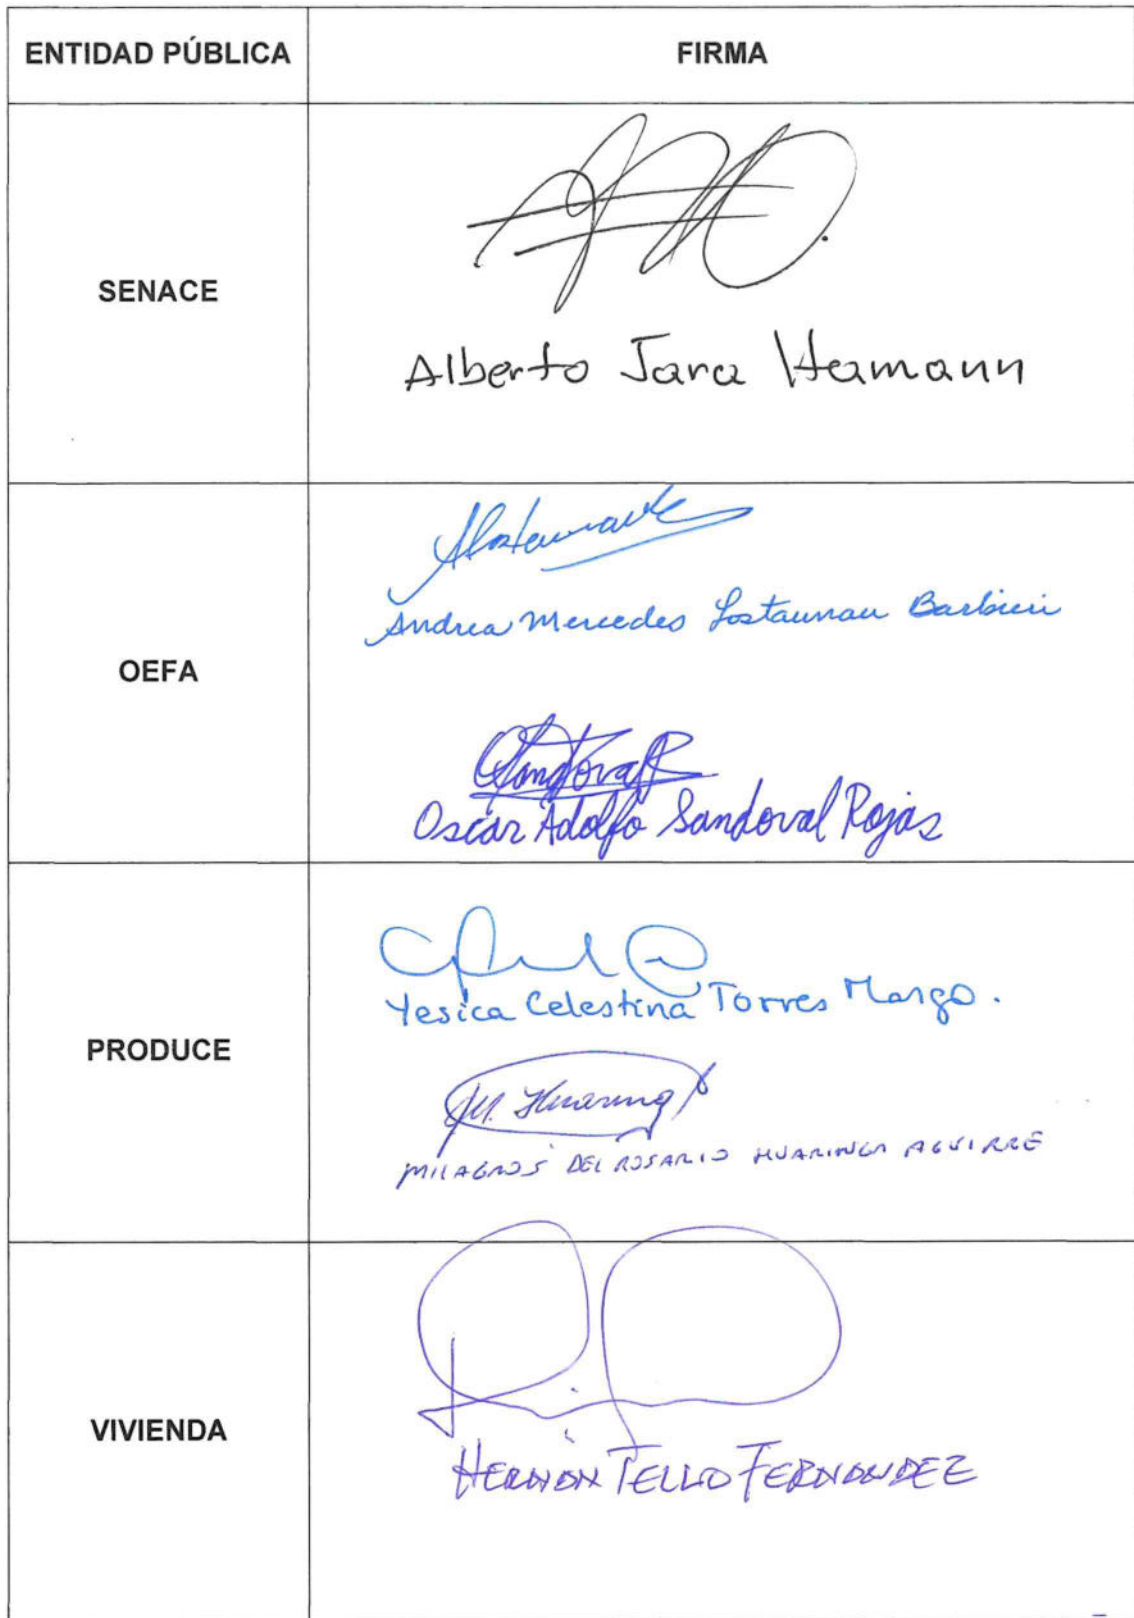 ENTIDAD PÚBLICA
FIRMA
SENACE
Alberto Jara
OEFA
Andrea Mercedes Lostaunau Barbieri
Sandoval R
Oscar Adolfo Sandoval Rojas
PRODUCE
Yesica Celestina Torres
M. Huaringa
MILAGROS DEL ROSARIO HUARINGA AGUIRRE
VIVIENDA
HERNÁN TELLO FERNANDEZ